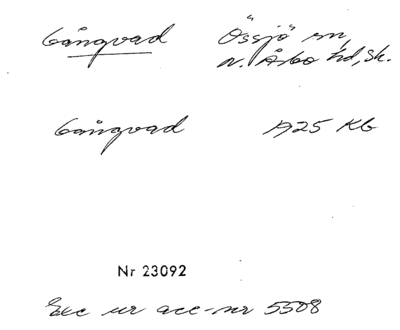 Gångvad Össjö sn,
N. Åsbo hd, Sk.
Gångvad 1925 KG
Nr 23092
Exc ur acc-nr 5508